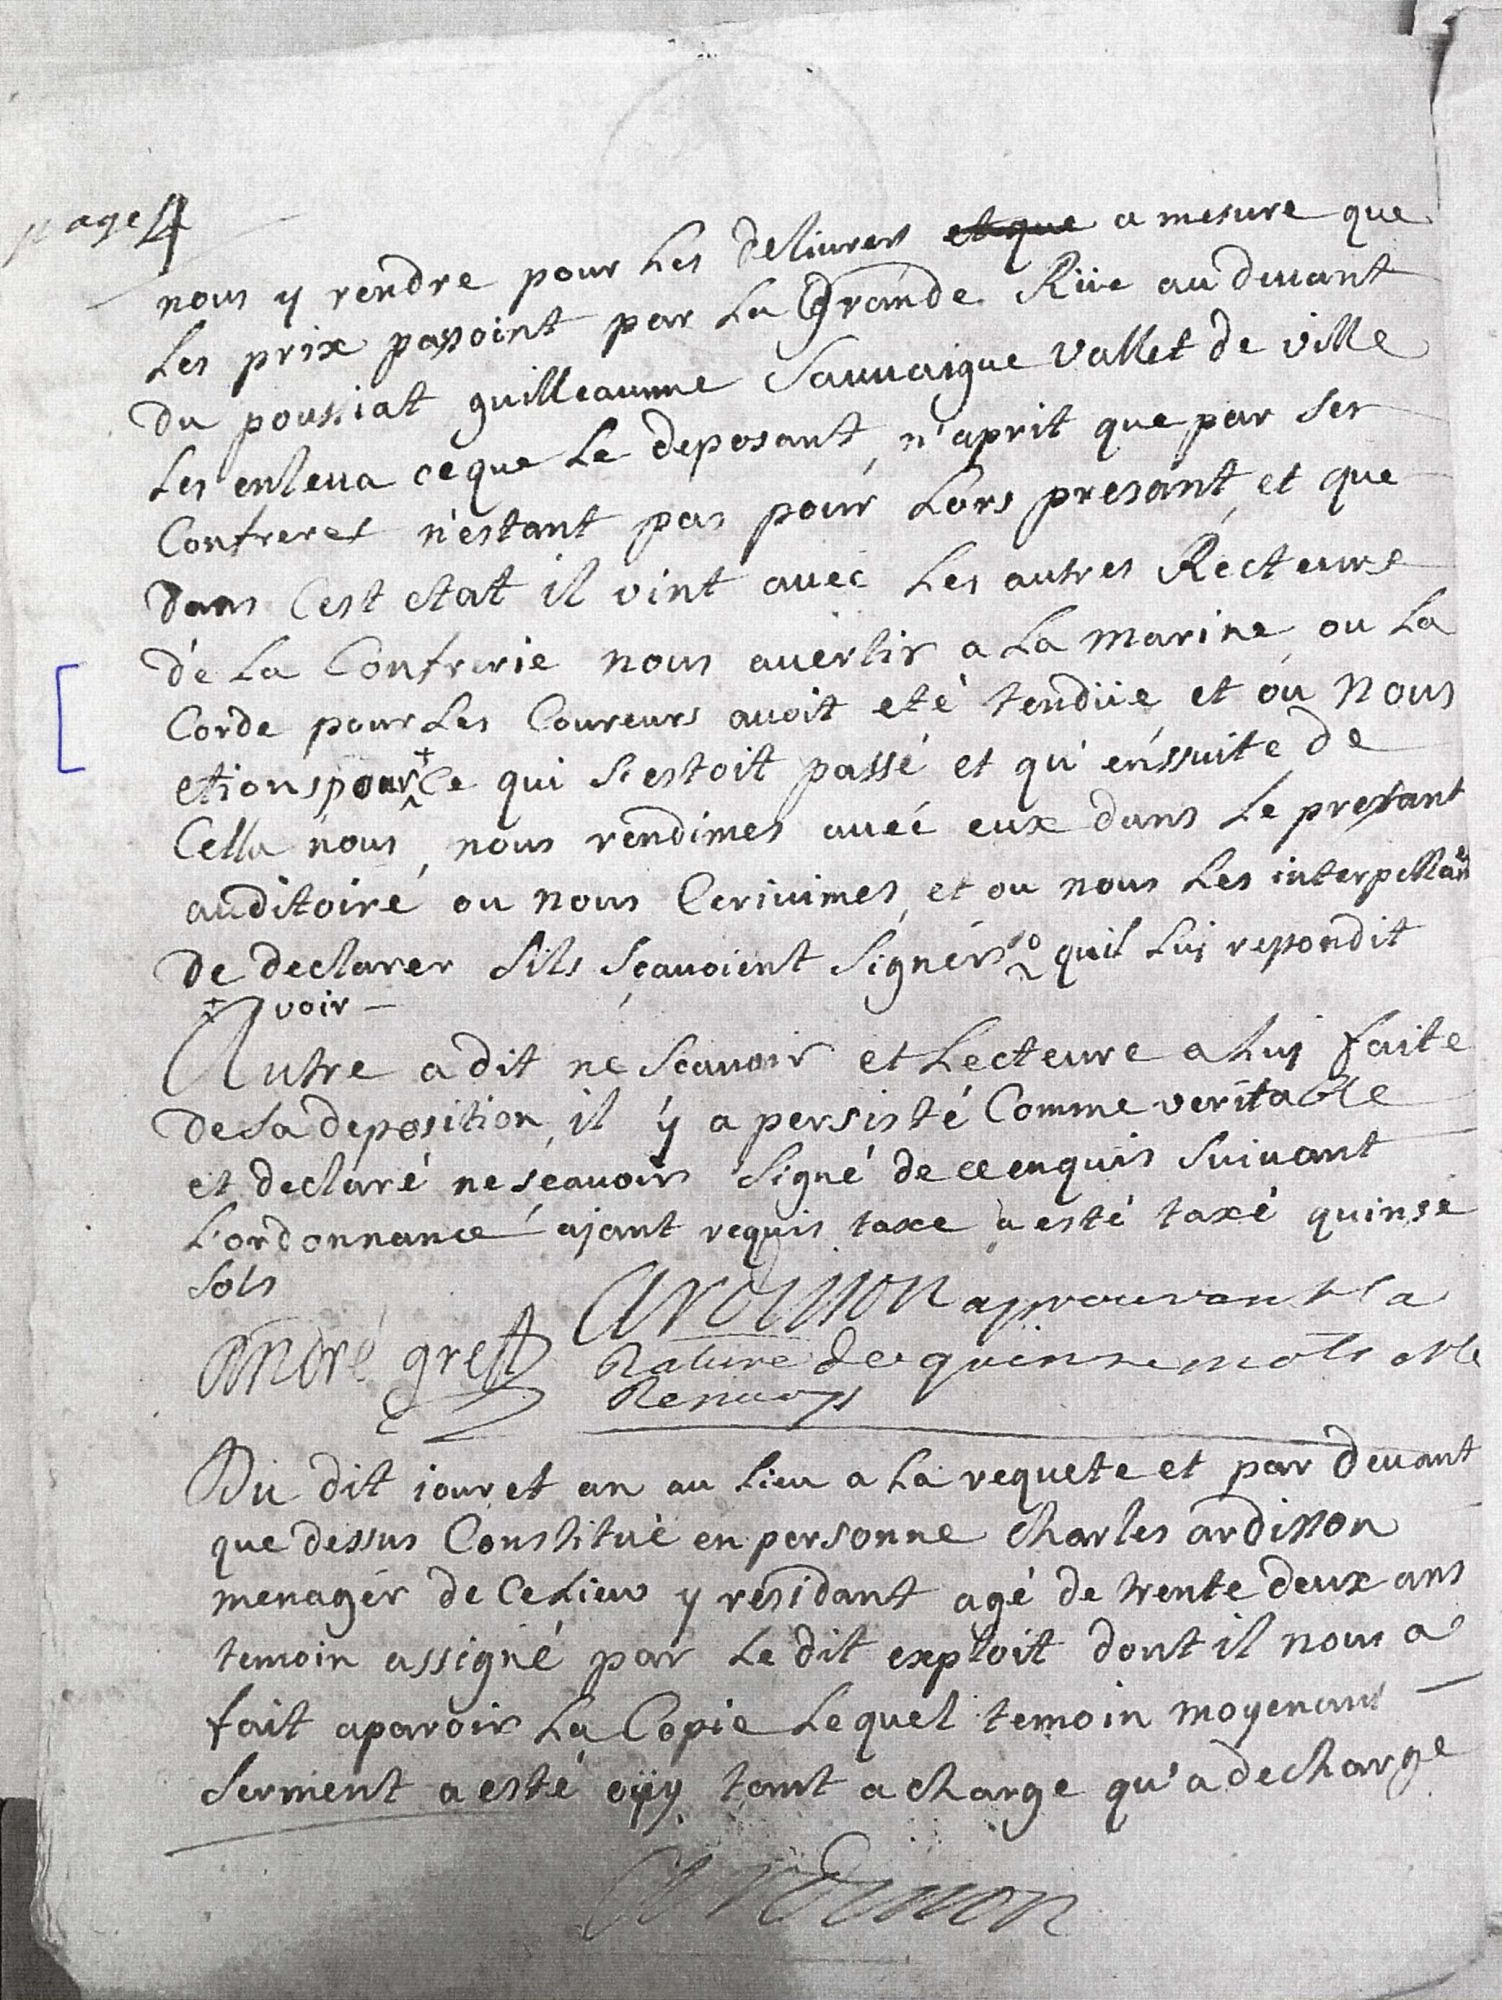 page 4
nous y rendre pour Les delivrer et que a mesure que
Les prix passoint par La Grande Rüe au devant
du poussiat guilleaume Sauvaigue vallet de ville
Les enleva ce que Le deposant, n'aprit que par ses
Confreres n'estant pas pour Lors presant, et que
dans Cest etat il vint avec Les autres Recteurs
de La Confrerie nous avertir a La marine, ou La
Corde pour Les Coureurs avoit eté tendüe et ou Nous
etions pour + Ce qui s'estoit passé et qu'enssuite de
Cella nous, nous rendimes avec eux dans Le presant
auditoire ou nous Ecrivimes, et ou nous Les interpellames
de declarer s'ils sçavoient signer quil Luy repondit
+ voir –
Autre a dit ne scavoir et Lecteure a Luy faite
de sa deposition, il y a persisté Comme veritable
et declaré ne scavoir signé de ce enquis suivant
L'ordonnance ajant requis taxe a esté taxé quinse
sols
Ardisson aprouvant la
André gres Rature de quinse mots et le
Renvoys
Du dit jour et an au Lieu a La requete et par devant
que dessus Constitué en personne Charles ardisson
menager de Ce Lieu y residant agé de trente deux ans
temoin assigné par Le dit exploit dont il nous a
fait aparoir La Copie Lequel temoin moyenant
serment a esté oüy tant a charge qu'a decharge
Ardisson